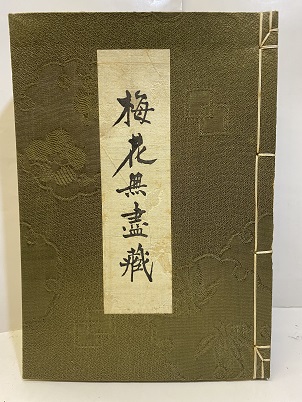 梅花無盡藏